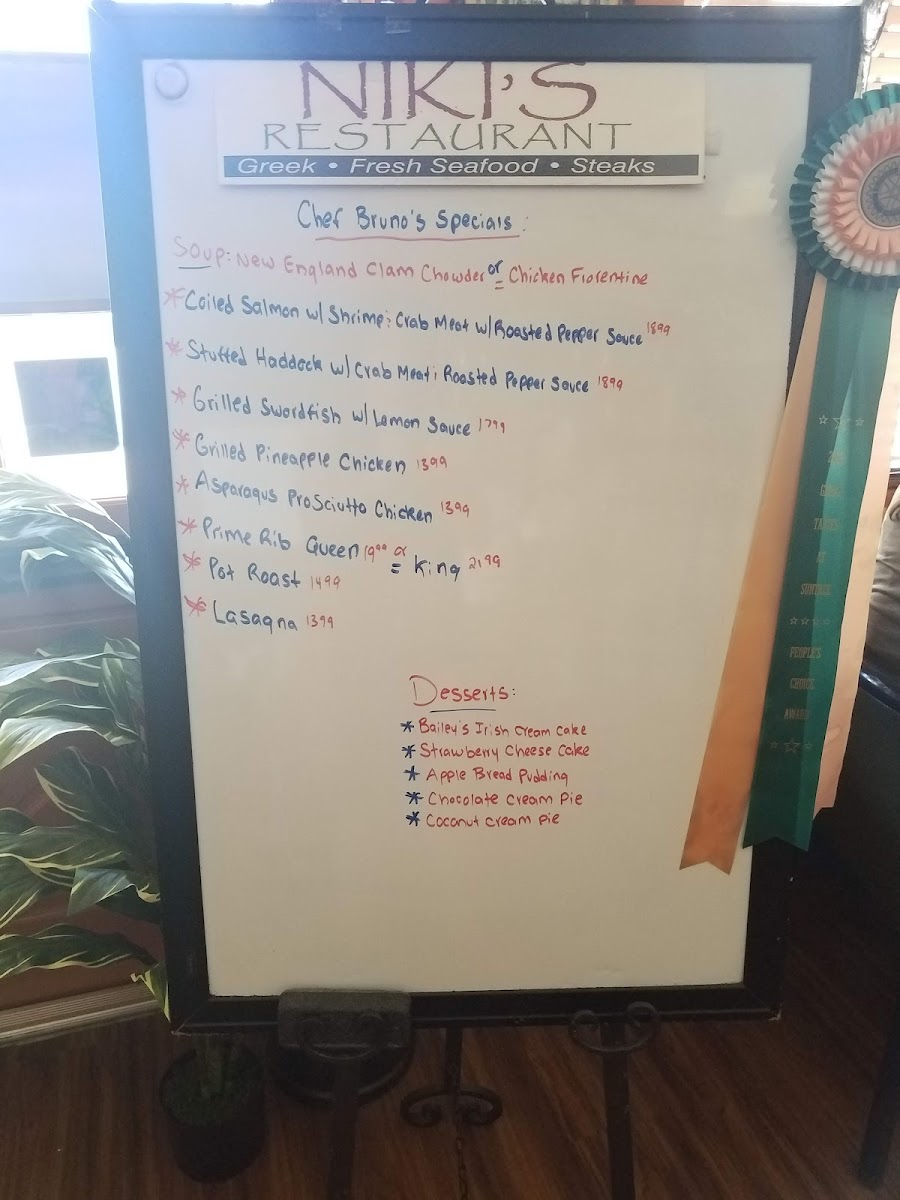 NIKI'S
RESTAURANT
Greek • Fresh Seafood • Steaks
Chef Bruno's Specials:
Soup: New England Clam Chowder or Chicken Florentine
* Coiled Salmon w/ Shrimp; Crab Meat w/ Roasted Pepper Sauce 1899
* Stuffed Haddock w/ Crab Meat; Roasted Pepper Sauce 1899
* Grilled Swordfish w/ Lemon Sauce 1799
* Grilled Pineapple Chicken 1399
* Asparagus Prosciutto Chicken 1399
* Prime Rib Queen 1999 or King 2199
* Pot Roast 1499
* Lasagna 1399
Desserts:
* Bailey's Irish Cream Cake
* Strawberry Cheese Cake
* Apple Bread Pudding
* Chocolate Cream Pie
* Coconut Cream Pie
AT
SUNTREE
PEOPLE'S
CHOICE
AWARD